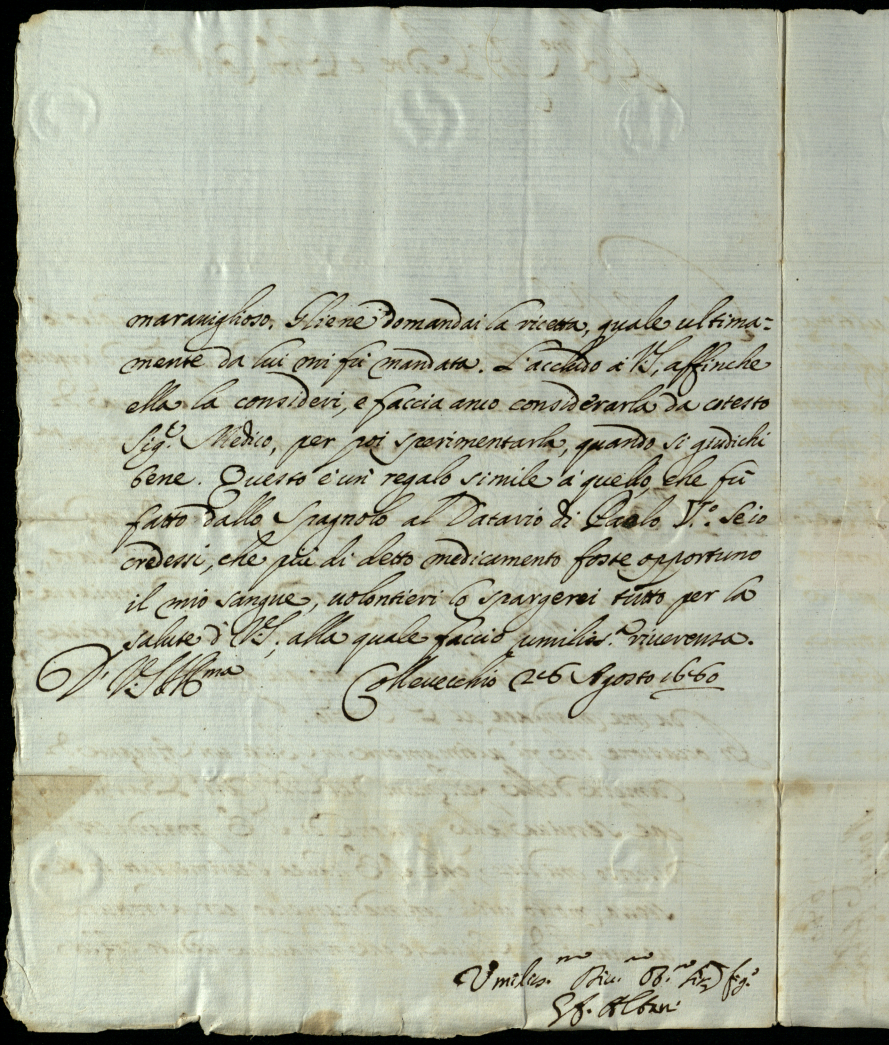 marauiglioso. Gliene domandai la ricetta, quale ultima=
mente da lui mi fù mandata. L'accludo à V.S. affinche
ella la consideri, e faccia anco considerarla da cotesto
Sig.r Medico, per poi sperimentarla, quando si giudichi
bene. Questo è un regalo simile à quello, che fù
fatto dallo Spagnolo al Datario di Paolo V.o Se io
credessi, che più di detto medicamento fosse opportuno
il mio sangue, uolontieri lo spargerei tutto per la
salute d' V.S., alla quale faccio umiliss.a riuerenza.
D. V.S. Ill.ma Colleuecchio 26 Agosto 1660
Umiliss.mo Diu.mo Ob.mo fig.o
Albani